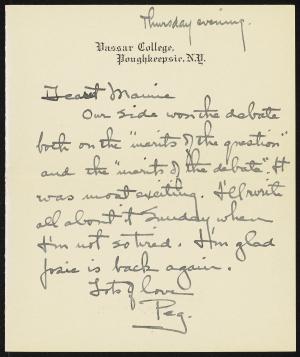 Thursday evening.
Vassar College,
Poughkeepsie, N.Y.
Dearest Mamie
Our side won the debate
both on the "merits of the question"
and the "merits of the debate". It
was most exciting. I'll write
all about it Sunday when
I'm not so tired. I'm glad
Josie is back again.
Lots of love
Peg.